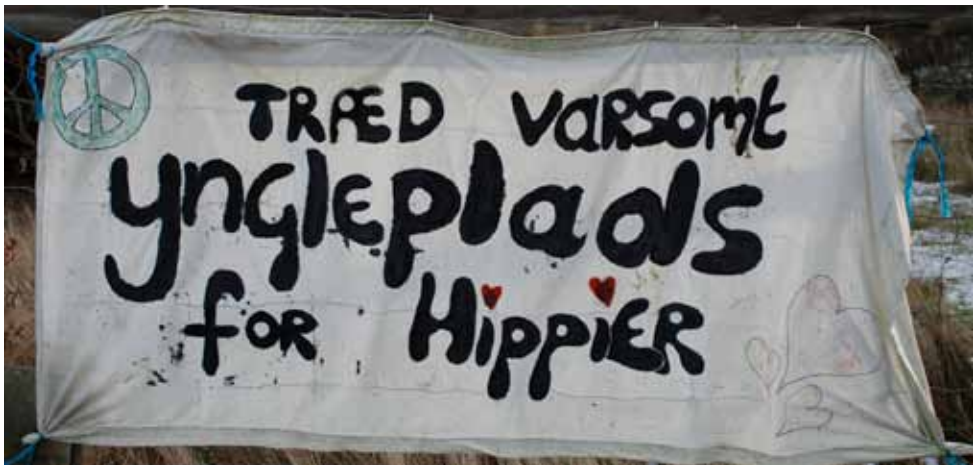 TRÆD VARSOMt
yngleplads
for HippiER